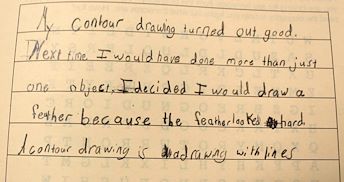 My contour drawing turned out good.
Next time I would have done more than just
one object. I decided I would draw a
feather because the feather looked hard.
A contour drawing is a drawing with lines